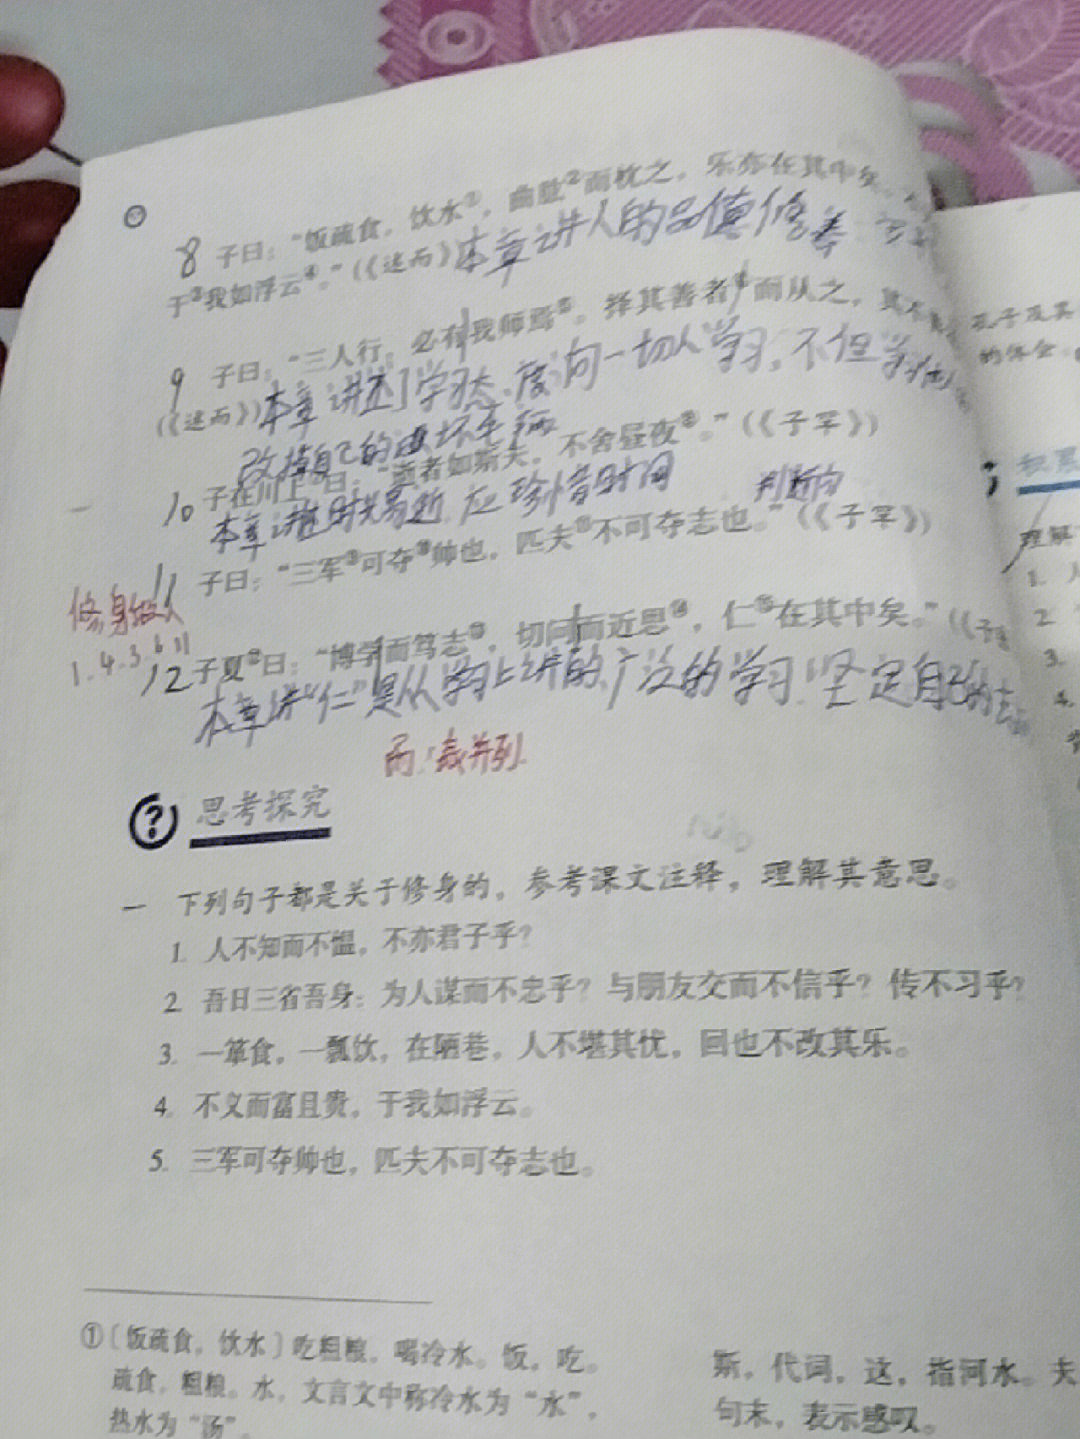 8 子曰：“饭疏食，饮水①，曲肱②而枕之，乐亦在其中矣。
本章讲人的品德修养
于③我如浮云④。”（《述而》）
9 子曰：“三人行，必有我师焉⑤。择其善者⑥而从之，其不
（《述而》）本章讲述了学习态度：向一切人学习，不但学
改掉自己的
10 子在川上曰：“逝者如斯夫，不舍昼夜⑧。”（《子罕》）
本章讲 时 易逝，应珍惜时间
判断句
11 子曰：“三军⑨可夺⑩帅也，匹夫⑪不可夺志也。”（《子罕》）
修身做人
1.4.3.6.11
12 子夏⑫曰：“博学而笃志⑬，切问而近思⑭，仁⑮在其中矣。”（《子
本章讲“仁”是从学习上讲的，广泛的学习，坚定自己的
而：表并列
思考探究
一 下列句子都是关于修身的，参考课文注释，理解其意思。
1. 人不知而不愠，不亦君子乎？
2. 吾日三省吾身：为人谋而不忠乎？与朋友交而不信乎？传不习乎？
3. 一箪食，一瓢饮，在陋巷，人不堪其忧，回也不改其乐。
4. 不义而富且贵，于我如浮云。
5. 三军可夺帅也，匹夫不可夺志也。
①〔饭疏食，饮水〕吃粗粮，喝冷水。饭，吃。
疏食，粗粮。水，文言文中称冷水为“水”，
热水为“汤”。
斯，代词，这，指河水。夫
句末，表示感叹。
孔子及其
的体会
理解
1.
2
3.
4.